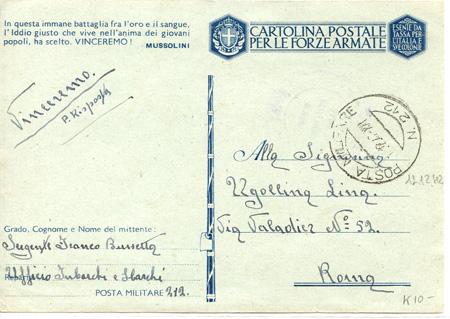 In questa immane battaglia fra l'oro e il sangue,
l'Iddio giusto che vive nell'anima dei giovani
popoli, ha scelto. VINCEREMO! MUSSOLINI
CARTOLINA POSTALE
PER LE FORZE ARMATE
ESENTE DA
TASSA PER
L'ITALIA E
SUE COLONIE
Vinceremo.
P. Risposta
POSTA MILITARE
N. 212
Alla Signorina
Ugolina Lina
Via Valadier No 52.
Roma
12.12.42
Grado, Cognome e Nome del mittente:
Sergente Franco
Reparto
Ufficio Imbarchi e Sbarchi
POSTA MILITARE 212.
K10-